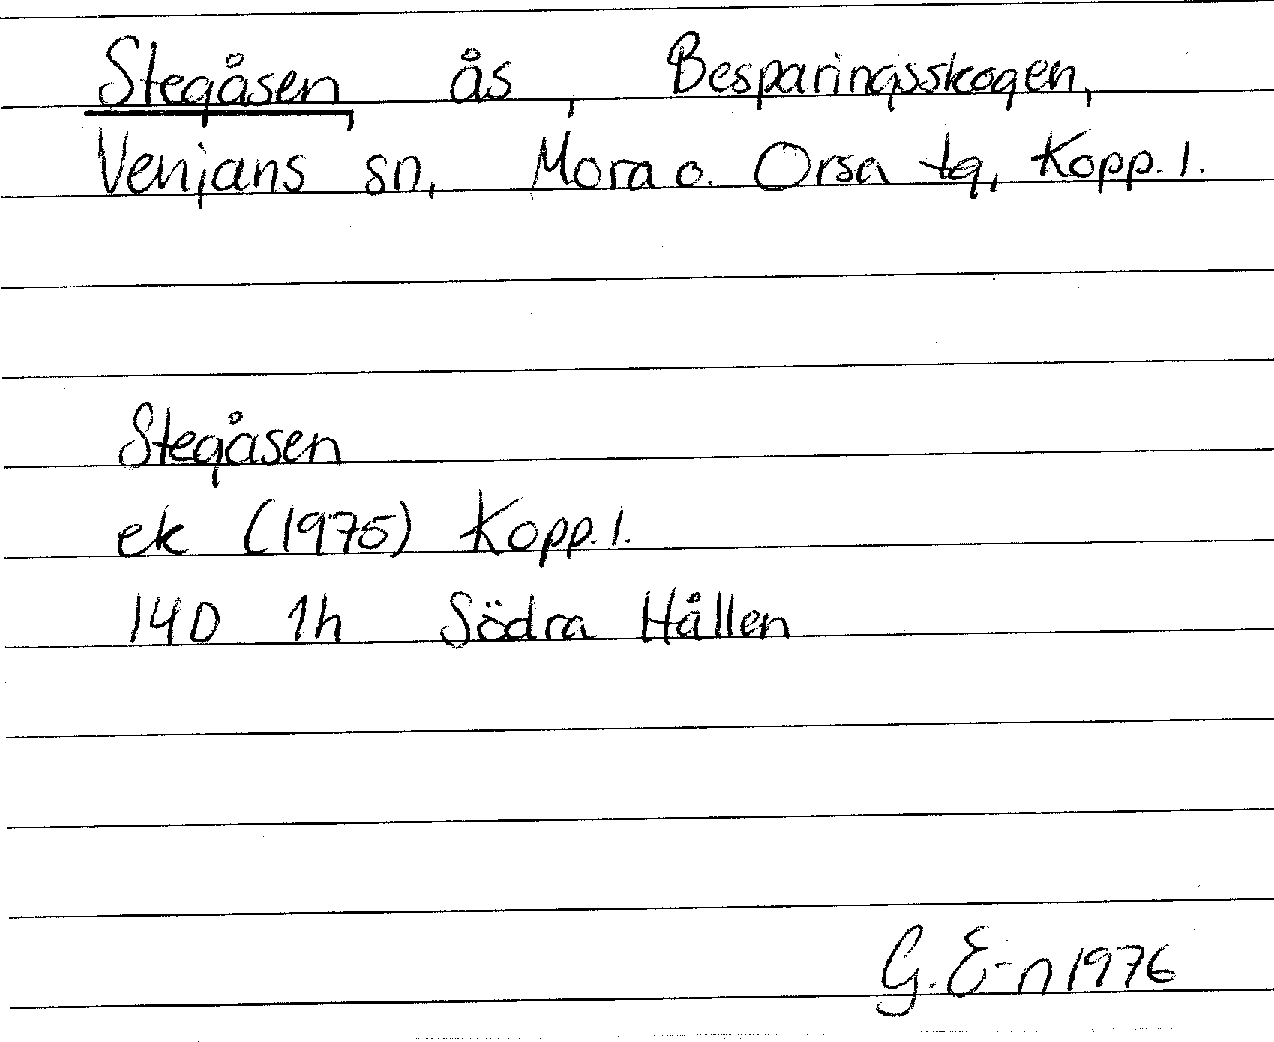 Stegåsen, ås, Besparingsskogen,
Venjans sn, Mora o. Orsa tg, Kopp. l.
Stegåsen
ek (1975) Kopp. l.
14D 1h Södra Hållen
G. E-n 1976